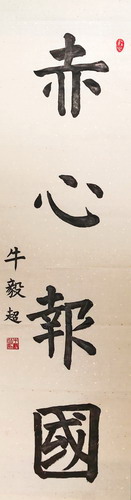 赤心報國
牛毅超